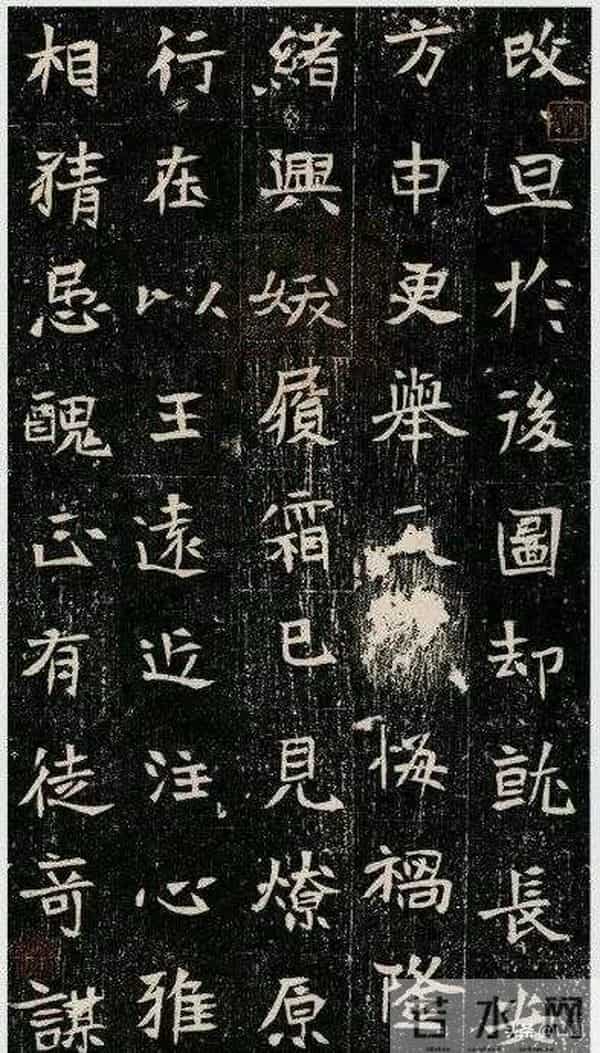 改旦於後圖却就長
方申更舉悔禍隆
緒興履霜已見燎原
行在以王遠近注心雅
相猜忌醜正有徒竒謀
水网
头条